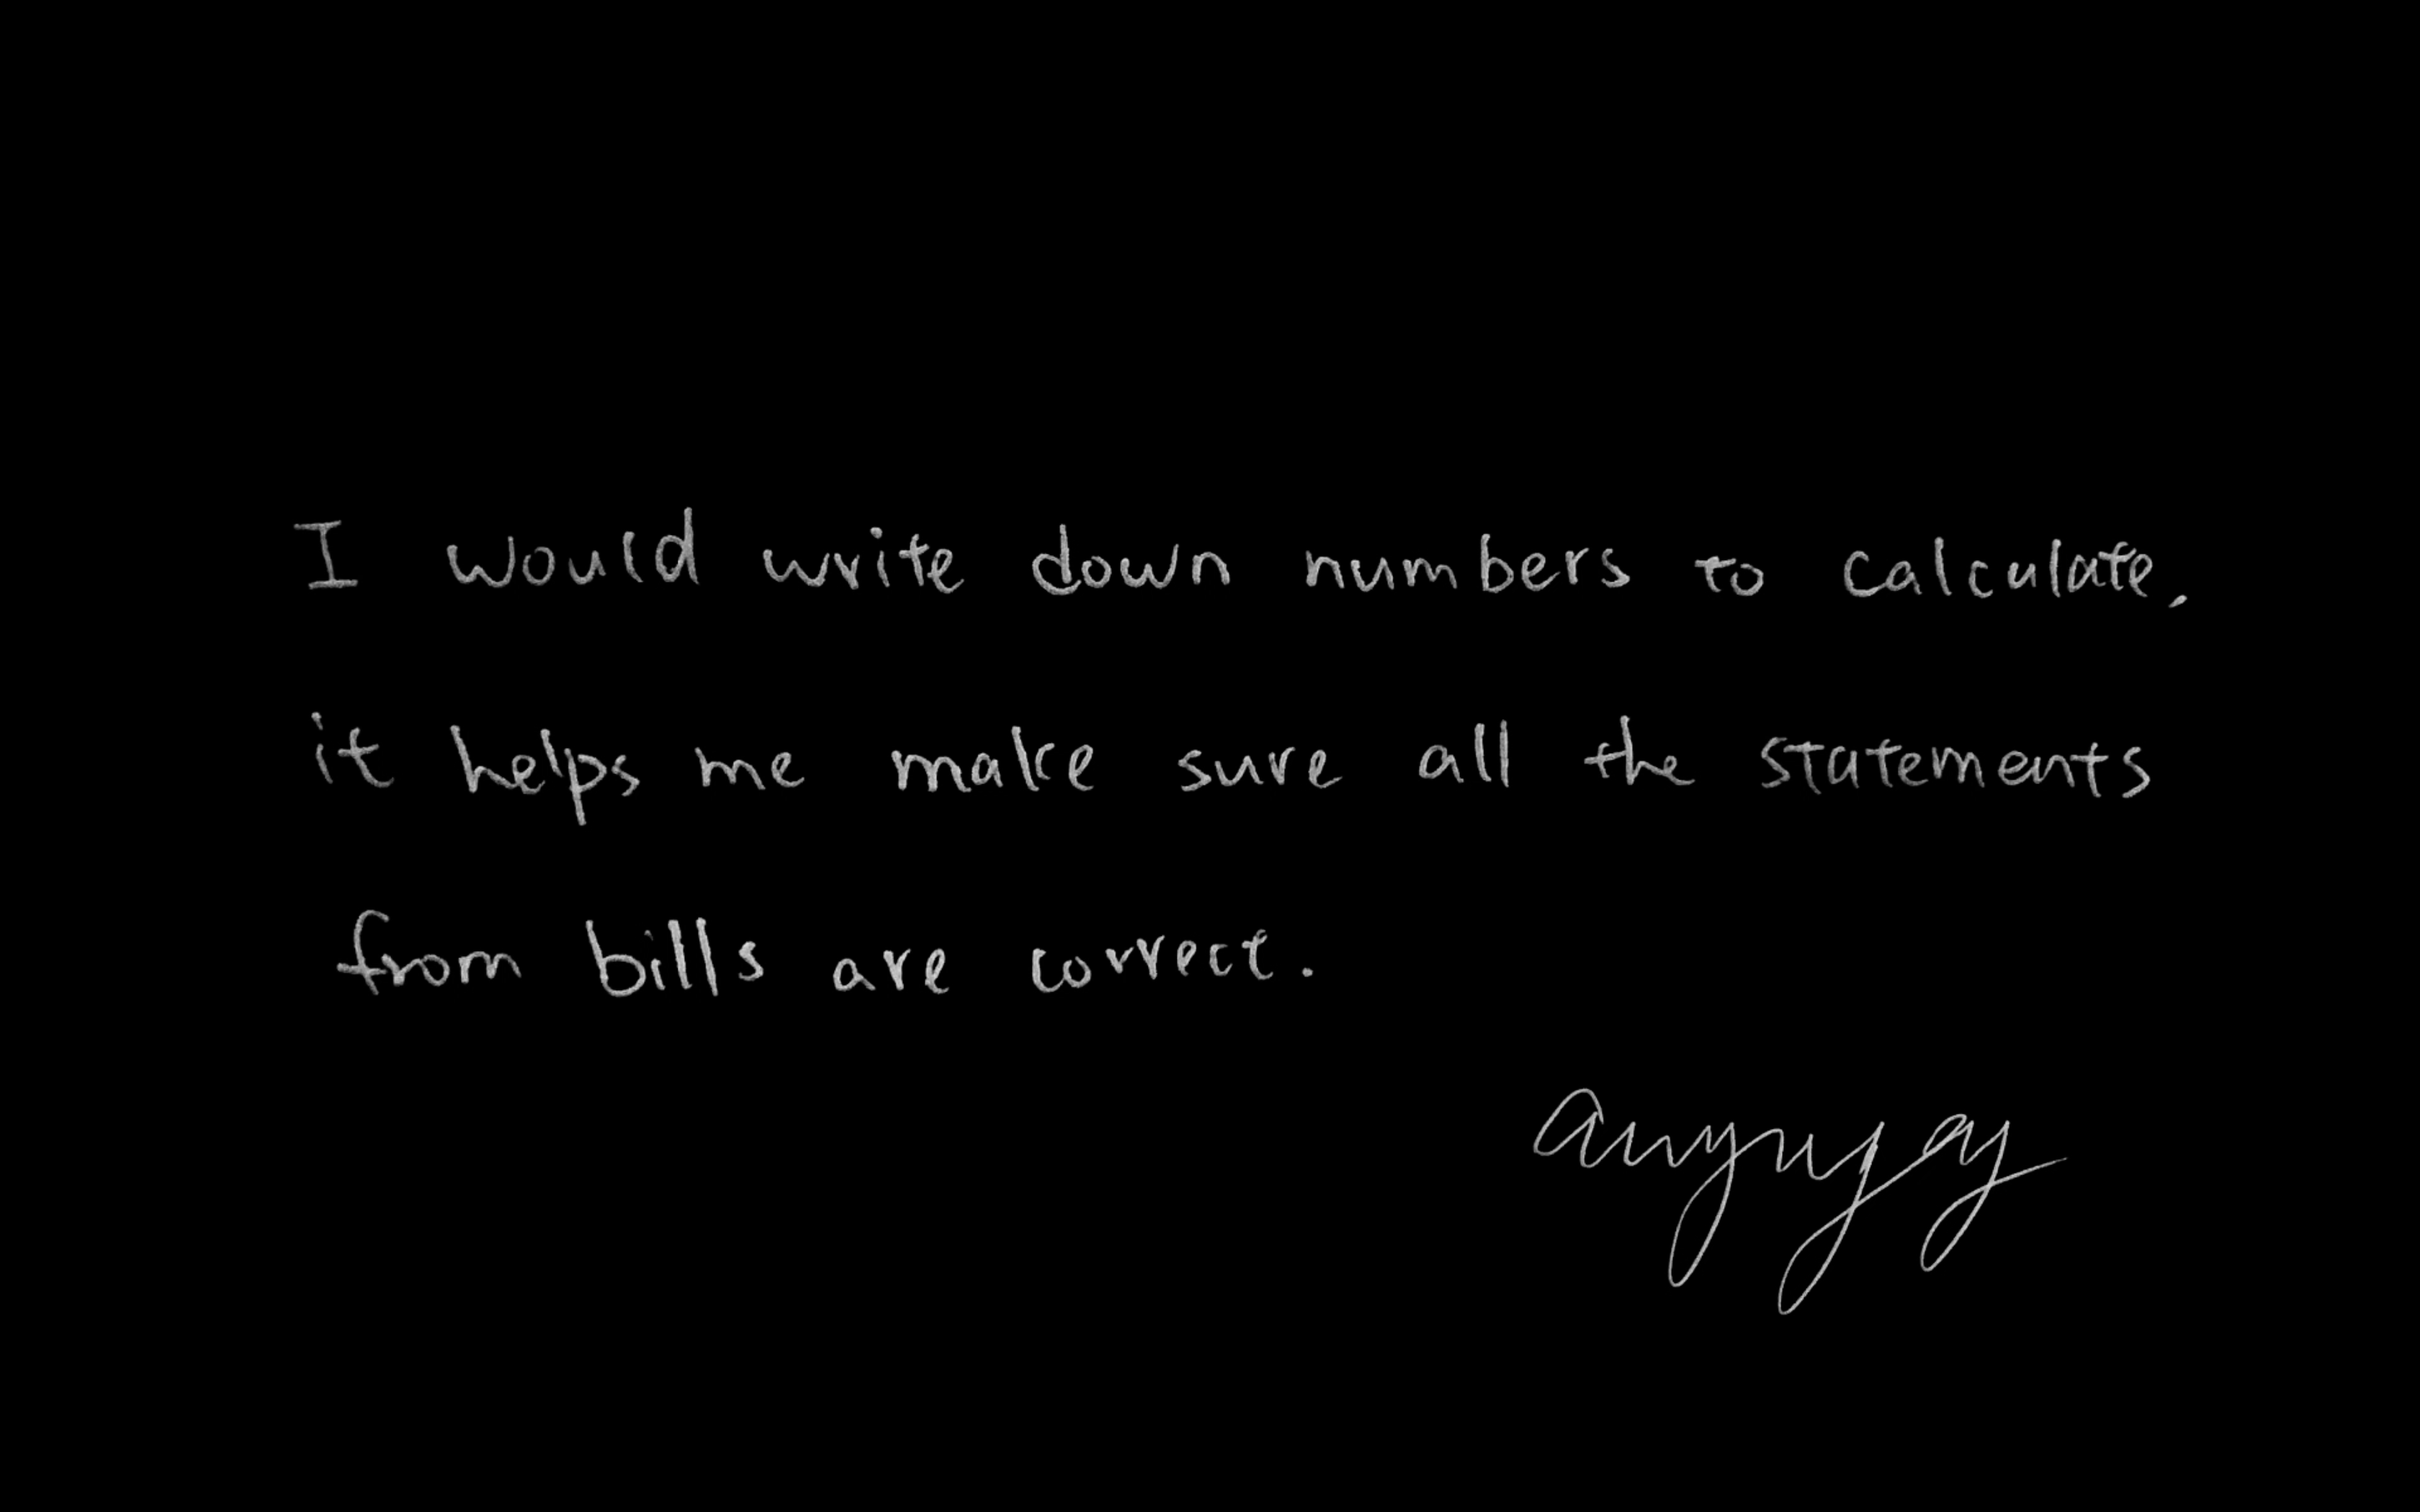 I would write down numbers to calculate,
it helps me make sure all the statements
from bills are correct.